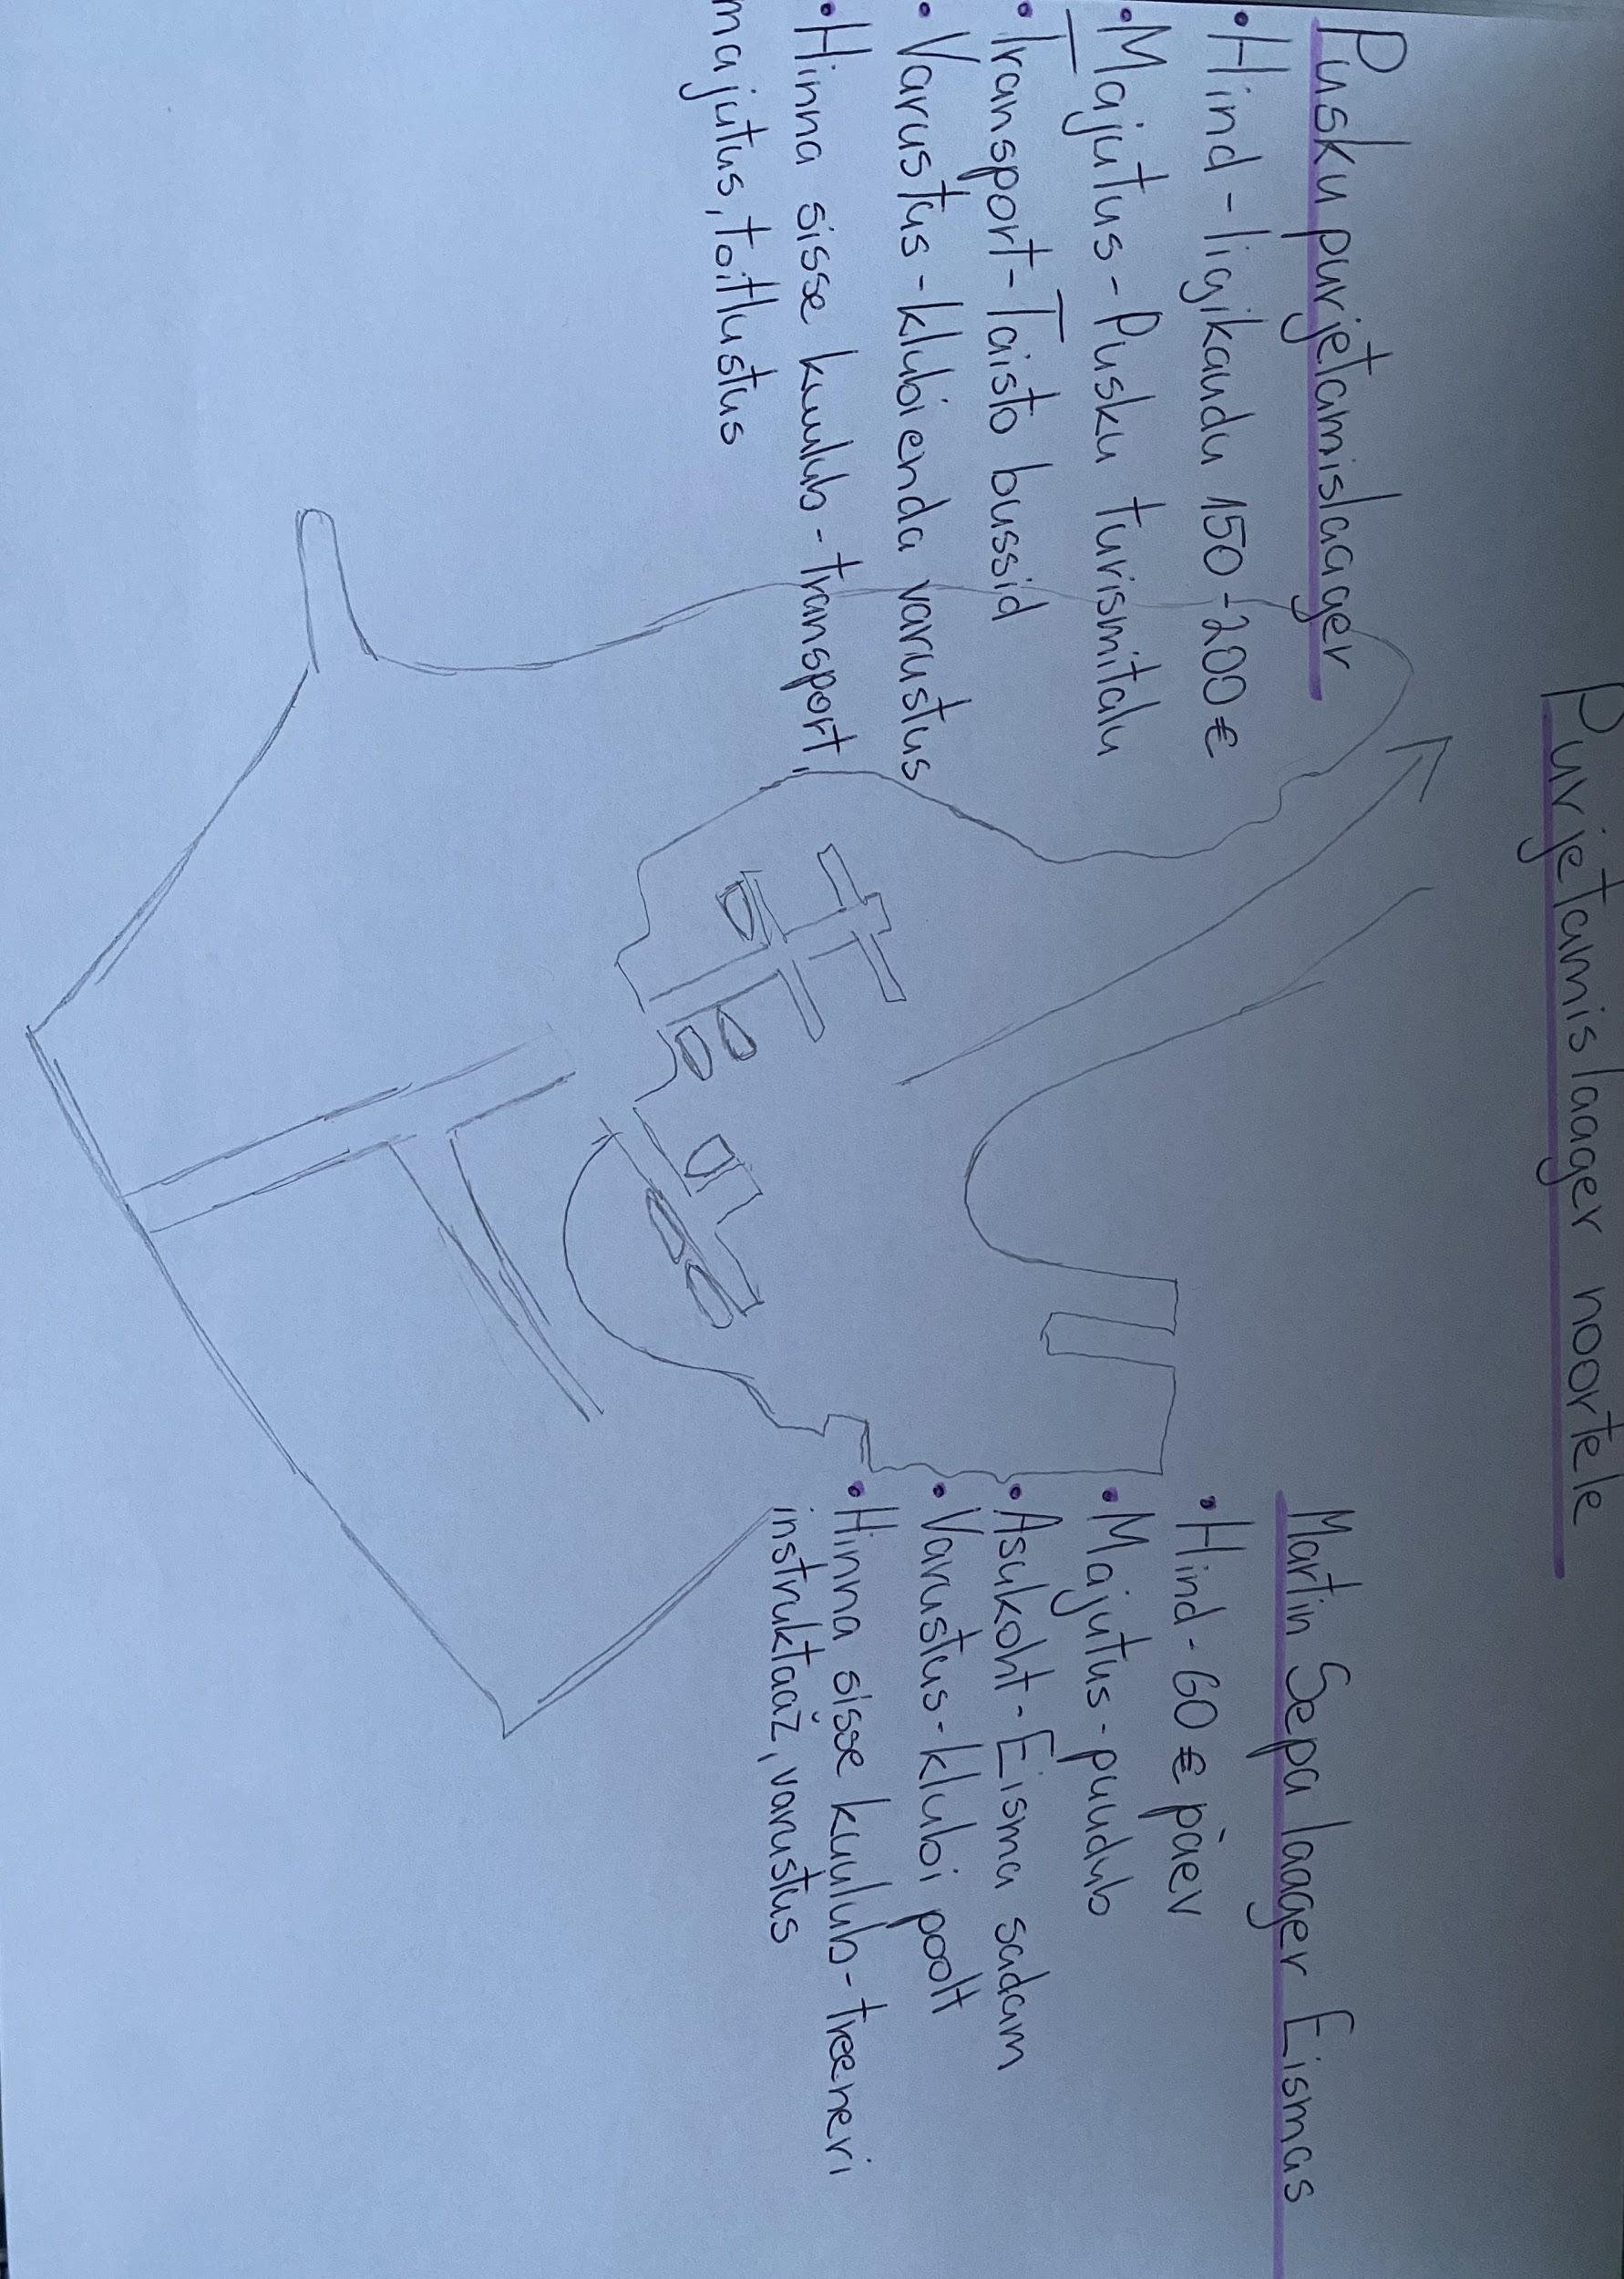 Purjetamislaager noortele
Pusku purjetamislaager
• Hind - ligikaudu 150-200€
• Majutus - Pusku turismitalu
• Transport - Taisto bussid
• Varustus - klubi enda varustus
• Hinna sisse kuulub - transport,
majutus, toitlustus
Martin Sepa laager Eismas
• Hind - 60€ päev
• Majutus - puudub
• Asukoht - Eisma sadam
• Varustus - klubi poolt
• Hinna sisse kuulub - treeneri
instruktaaž, varustus